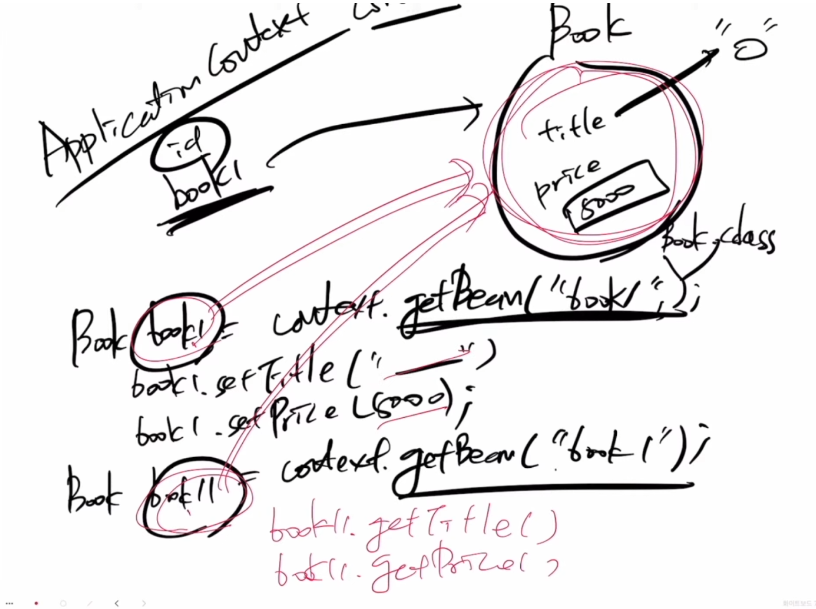 Application Context
id
book1
Book
title
"0"
price
5000
Book.class
Book book1 = context.getBean("book1",);
book1.setTitle("    ")
book1.setPrice(5000);
Book book11 = context.getBean("book1");
book11.getTitle()
book11.getPrice()